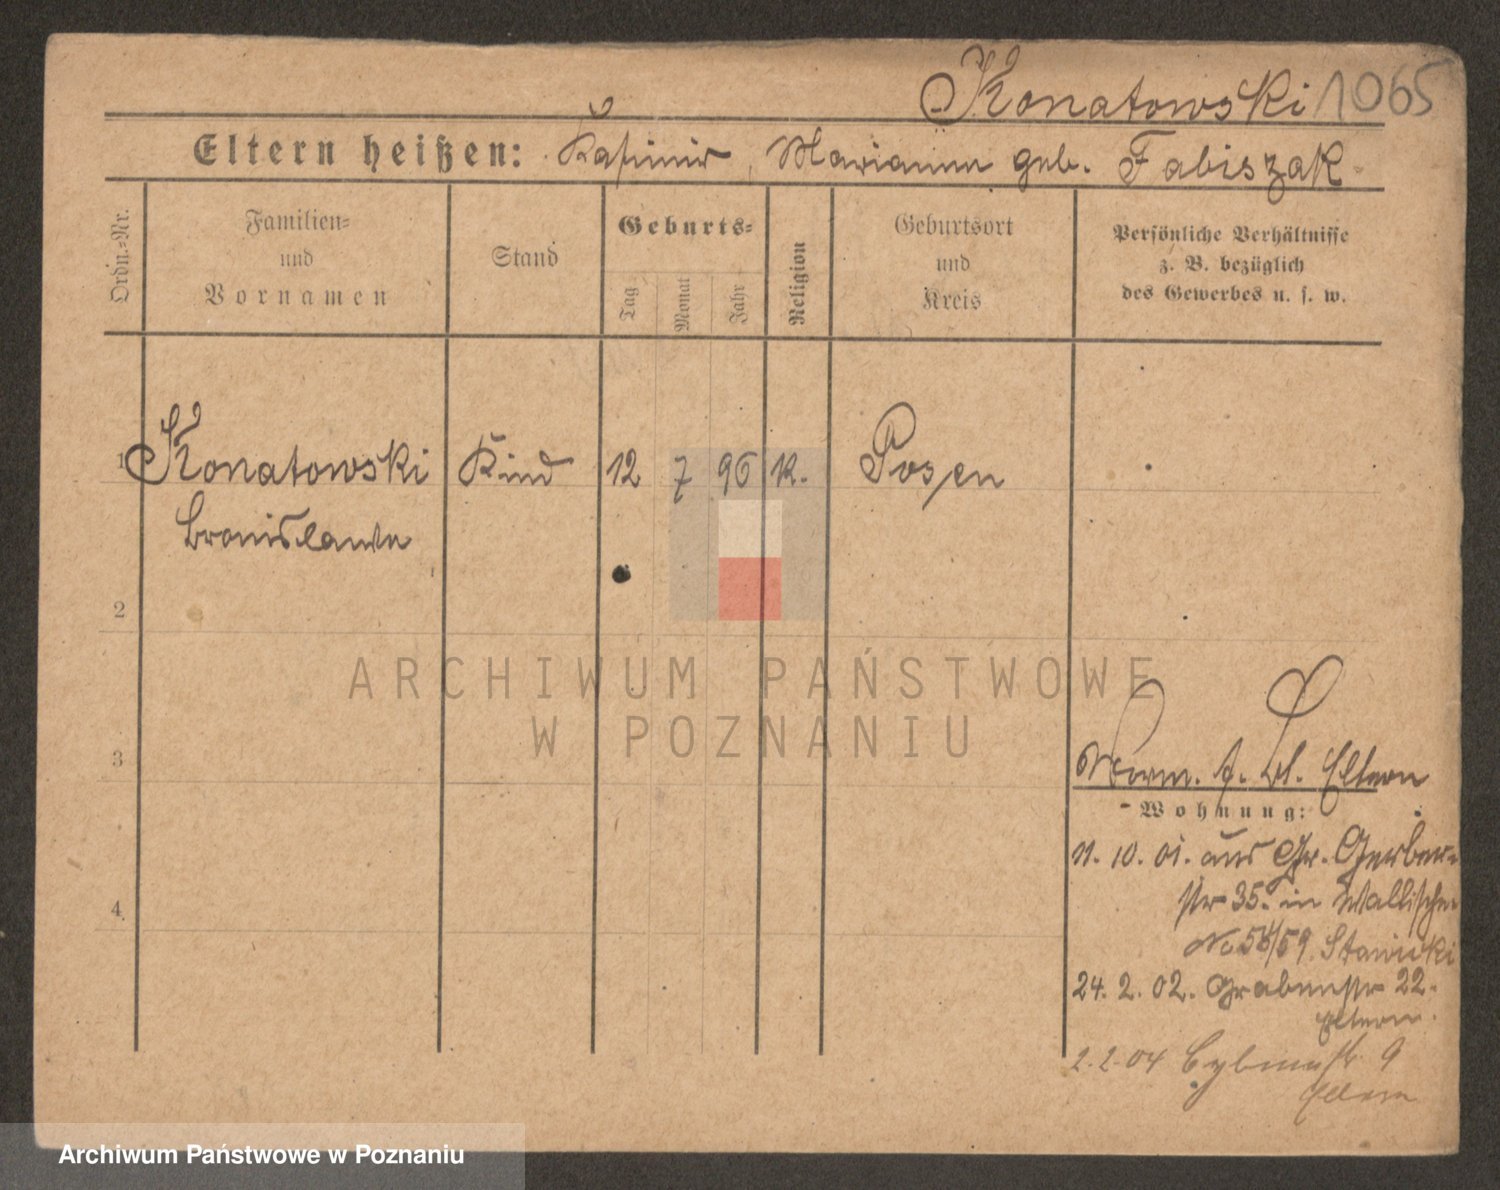 Konatowski 1065
Eltern heißen: Kasimir, Marianna geb. Fabiszak
Ordn.-Nr.
Familien-
und
Vornamen
Stand
Geburts-
Tag
Monat
Jahr
Religion
Geburtsort
und
Kreis
Persönliche Verhältnisse
z. B. bezüglich
des Gewerbes u. s. w.
1 Konatowski Kind 12 7 96 K. Posen
Bronislawa
2
3
4
ARCHIWUM PAŃSTWOWE
W POZNANIU
Eltern
Wohnung:
11. 10. 01. aus Gr. Gerber-
str 35. in Wallischei
No 58/59. Stawicki
24. 2. 02. Grabenstr 22.
Eltern.
2. 2. 04 9
Eltern
Archiwum Państwowe w Poznaniu